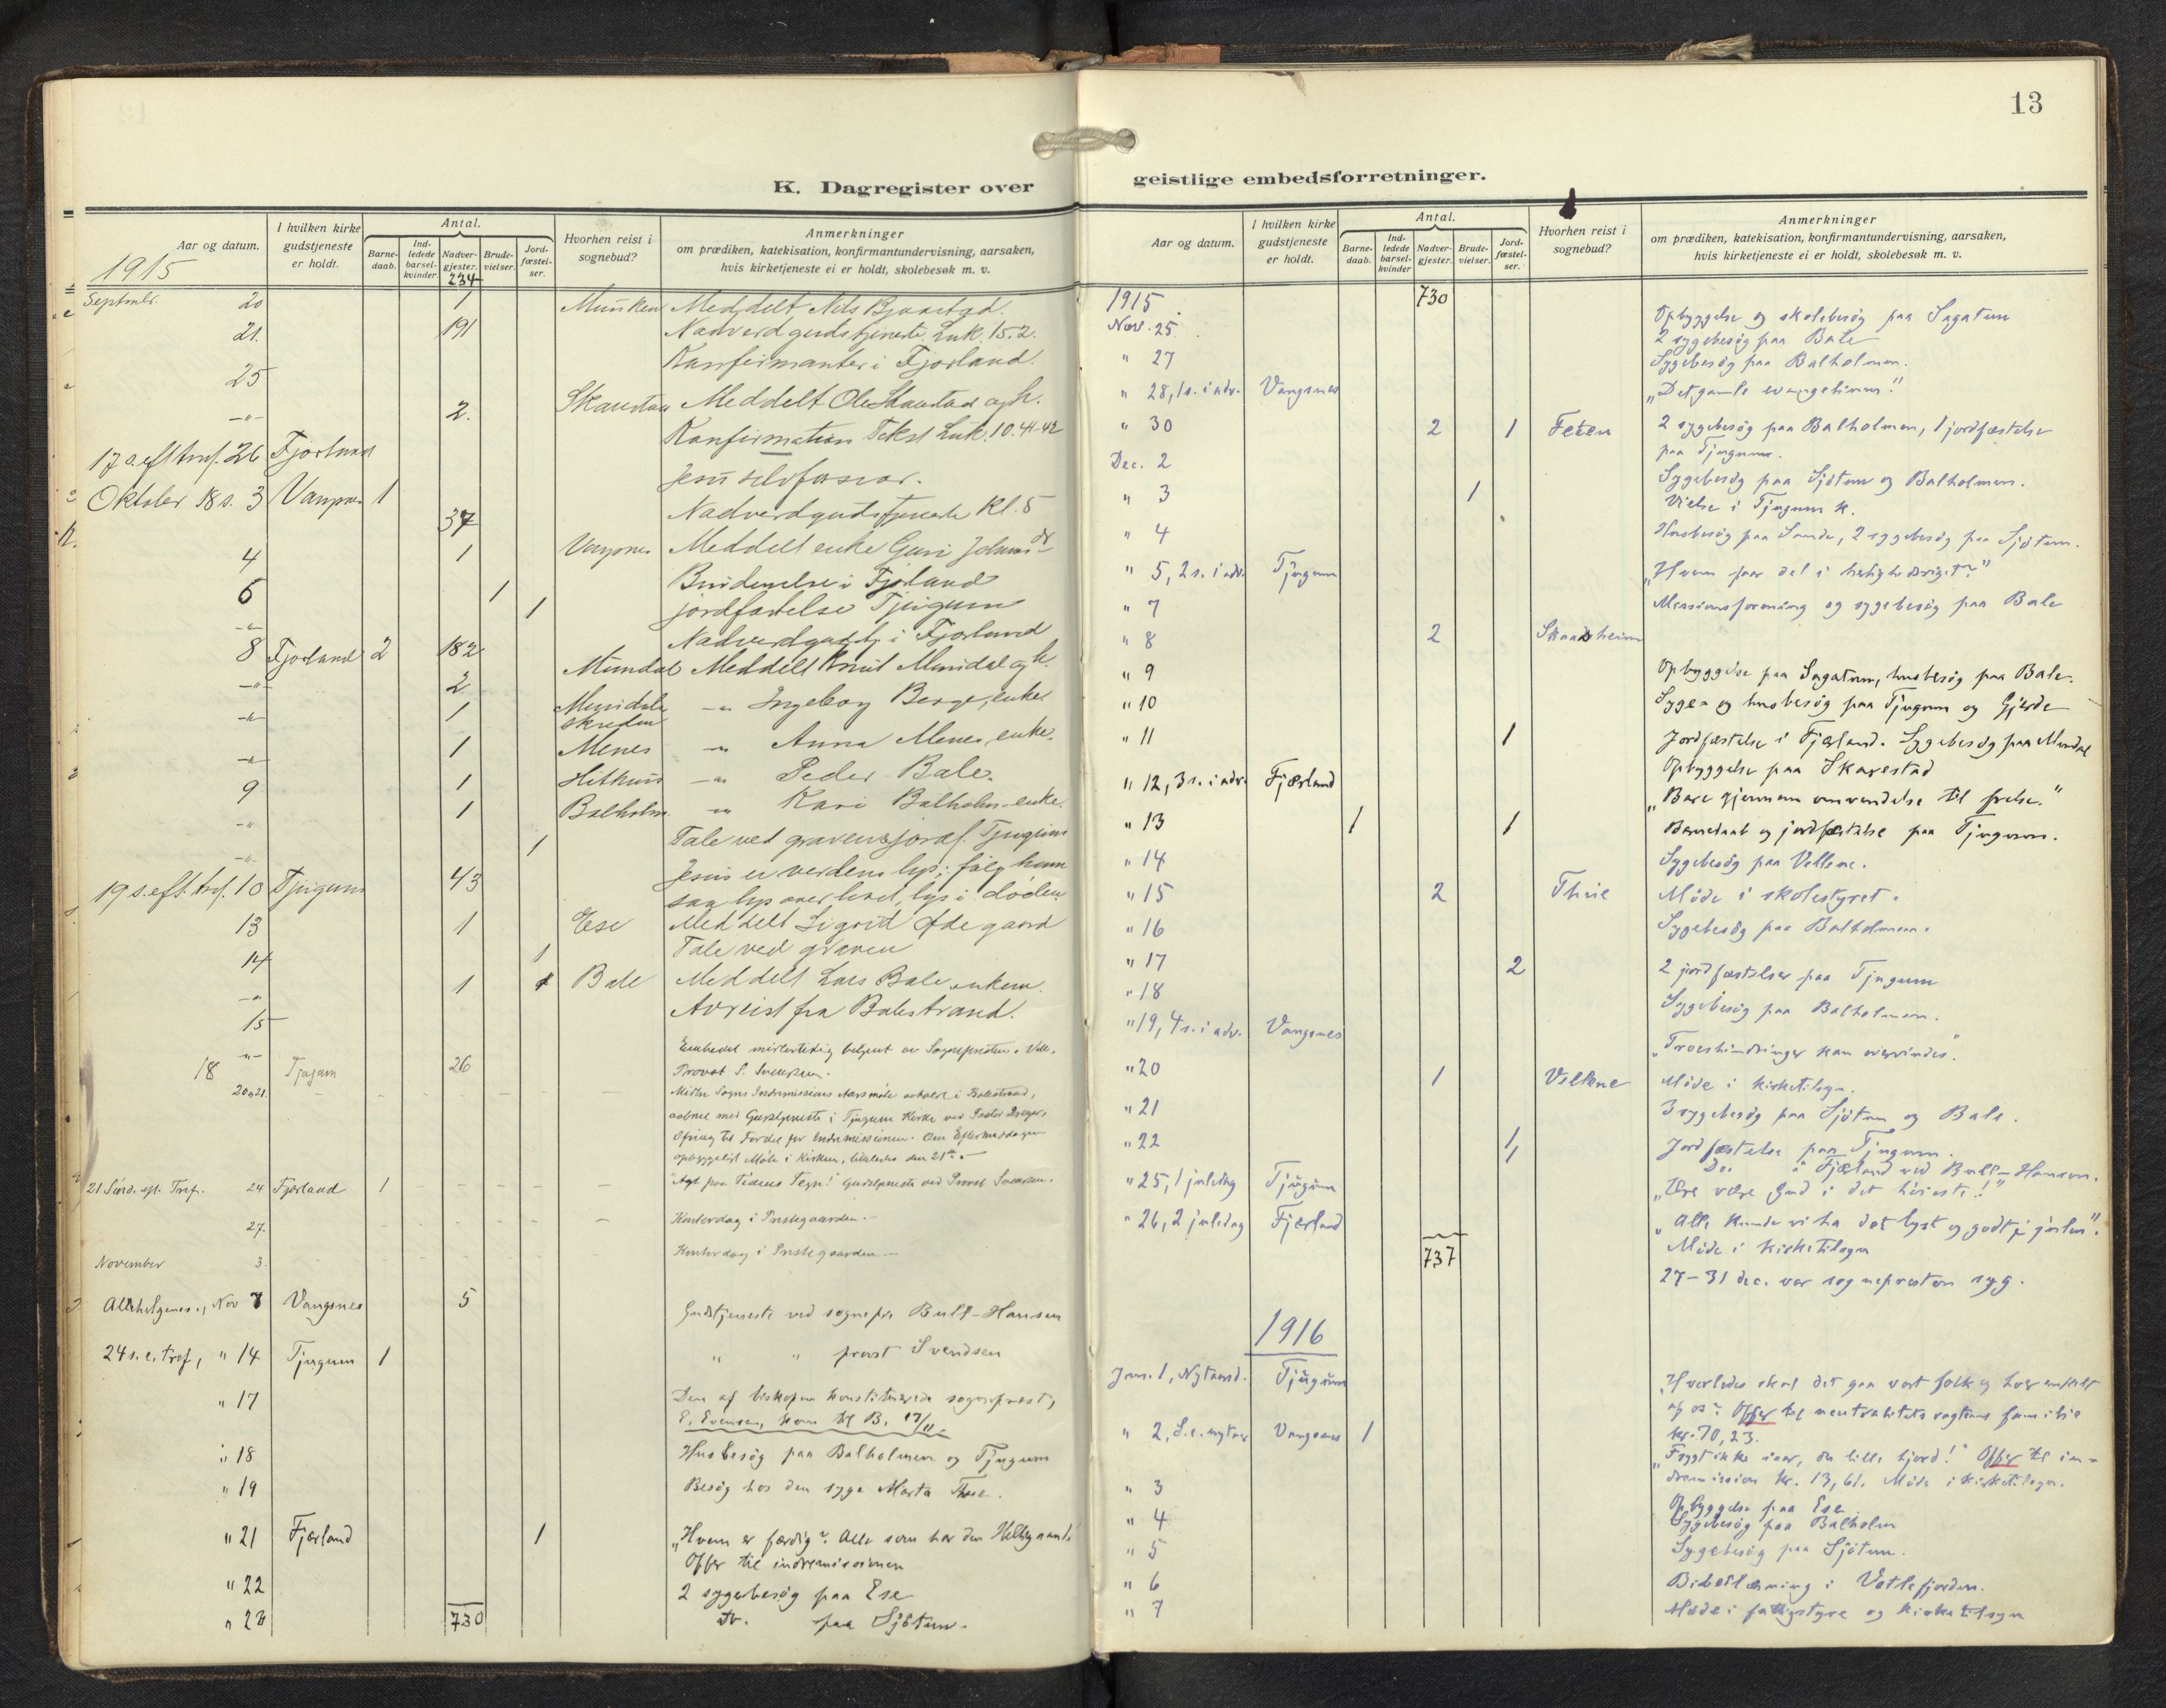 13
K. Dagregister over geistlige embedsforretninger.
Aar og datum.
I hvilken kirke gudstjeneste er holdt.
Antal.
Barne-daab.
Ind-ledede barsel-kvinder.
Nadver-gjester.
Brude-vielser.
Jord-fæstel-ser.
Hvorhen reist i sognebud?
Anmerkninger
om prædiken, katekisation, konfirmantundervisning, aarsaken,
hvis kirketjeneste ei er holdt, skolebesøk m. v.
1915
234
Septmbr. 20 1 Meddelt Nils
21. 191 Nadverdgudstjeneste Luk. 15.2.
25 Konfirmanter i Fjørland.
—"— 2. Meddelt Ole Skarestad og h.
Konfirmation Tekst Luk. 10.41-42
17 s. eft. tref. 26 Fjørland
Oktober 18 s. 3 Vangsnes 1
37 Nadverdgudstjeneste Kl. 5
4 1 Vangsnes Meddelt enke Guri
6 1 Brudevielse i Fjørland
—"— 1 jordfæstelse Tjugum
8 Fjørland 2 182 Nadverdgudstj. i Fjørland
—"— 2 Mundal Meddelt Knut Mundal og h.
—"— 1 Mundalsskreden —"— Ingeborg Berge, enke.
—"— 1 Menes —"— Anna Menes, enke.
9 1 —"— Peder Bale.
—"— 1 Balholm —"— Kari Balholm enke.
—"— 1 Tale ved graven & jordf. Tjugum
19 s. eft. tref. 10 Tjugum 43 Jesus er verdens lys; følg ham
saa lys over livet, lys i døden.
13 1 Ese Meddelt Sigrid Ødegaard
14 1 Tale ved graven
—"— 1 Bale Meddelt Lars Bale
15 Avreist fra Balestrand.
18 Tjugum 26 Embedet midlertidig betjent av Sognepresten i Vik,
Provst S. Svendsen.
20 og 21. Midtre Sogns Indremissions Aarsmøte avholdt i Balestrand,
aabnet med Gudstjeneste i Tjugum Kirke ved Pastor
Ofring til Fordel for Indremissionen. Om Eftermiddagen
opbyggeligt Møte i Kirken, likeledes den 21de.—
21 Sönd. eft. Tref. 24 Fjærland 1 "Agt paa Tidens Tegn!" Gudstjeneste ved Provst Svendsen.
27. Kontordag i Prestegaarden.—
November 3. Kontordag i Prestegaarden—
Allehelgenss., Nov 7 Vangsnes 5 Gudstjeneste ved sognepr. Bull-Hansen
24 s. e. tref, " 14 Tjugum 1 " " provst Svendsen
" 17 Den af biskopen konstituerede sogneprest,
E. Evensen, kom til B. 17/11.
" 18 Husbesög paa Balholmen og Tjugum
" 19 Besög hos den syge Marta Thue.
" 21 Fjærland 1 „Hvem er færdig? Alle som har den Helligaand."
Offer til indremissionen
" 22 2 sygebesög paa Ese
" 23 730 do. paa Sjötun.
Aar og datum.
I hvilken kirke gudstjeneste er holdt.
Antal.
Barne-daab.
Ind-ledede barsel-kvinder
Nadver-gjester.
Brude-vielser.
Jord-fæstel-ser.
Hvorhen reist i sognebud?
Anmerkninger
om prædiken, katekisation, konfirmantundervisning, aarsaken,
hvis kirketjeneste ei er holdt, skolebesøk m. v.
1915 730
Nov. 25 Opbyggelse og skolebesög paa Sagatun
2 sygebesög paa Bale
" 27 Sygebesög paa Balholmen.
" 28, 1 s. i adv. Vangsnes „Det gamle evangelium!"
" 30 2 1 Feten 2 sygebesög paa Balholmen, 1 jordfæstelse
paa Tjugum.
Dec. 2 Sygebesög paa Sjötun og Balholmen.
" 3 1 Vielse i Tjugum k.
" 4 Husbesög paa Sande, 2 sygebesög paa Sjötun.
" 5, 2 s. i adv. Tjugum „Hvem faar del i herlighedsriget?"
" 7 Missionsforening og sygebesög paa Bale
" 8 2 Skaasheim
" 9 Opbyggelse paa Sagatun, husbesög paa Bale.
" 10 Syge- og husbesög paa Tjugum og Gjerde
" 11 1 Jordfæstelse i Fjærland. Sygebesög paa Mundal
Opbyggelse paa Skarestad
" 12, 3 s. i adv. Fjærland „Bare gjennem omvendelse til frelse."
" 13 1 1 Barnedaab og jordfæstelse paa Tjugum.
" 14 Sygebesög paa Veltene.
" 15 2 Thue Möde i skolestyret.
" 16 Sygebesög paa Balholmen.
" 17 2 2 jordfæstelser paa Tjugum
" 18 Sygebesög paa Balholmen.
" 19, 4 s. i adv. Vangsnes „Troeshindringer kan overvindes".
" 20 1 Veltene Möde i kirketilsyn.
" 21 3 sygebesög paa Sjötun og Bale.
" 22 1, Jordfæstelse paa Tjugum.
1 Do. i Fjærland ved Bull-Hansen.
" 25, 1 juledag Tjugum „Ære være Gud i det höieste!"
" 26, 2 juledag Fjærland „Alle kunde vi ha det lyst og godt i julen".
737 Möde i kirketilsyn
27-31 dec. var sognepresten syg.
1916
Jan. 1, Nytaarsd. Tjugum „Hvorledes skal det gaa vort folk og hver enkelt
af os? Offer til neutralitetsvagtens familie
kr. 70,23.
" 2, S. e. nytaar Vangsnes 1 „Frygt ikke iaar, du lille hjord!" Offer til in-
dremission kr. 13,61. Möde i kirketilsyn.
" 3 Opbyggelse paa Ese
" 4 Sygebesög paa Balholm
" 5 Sygebesög paa Sjötun.
" 6 Bibellæsning i Vetlefjorden.
" 7 Möde i fattigstyre og kirketilsyn